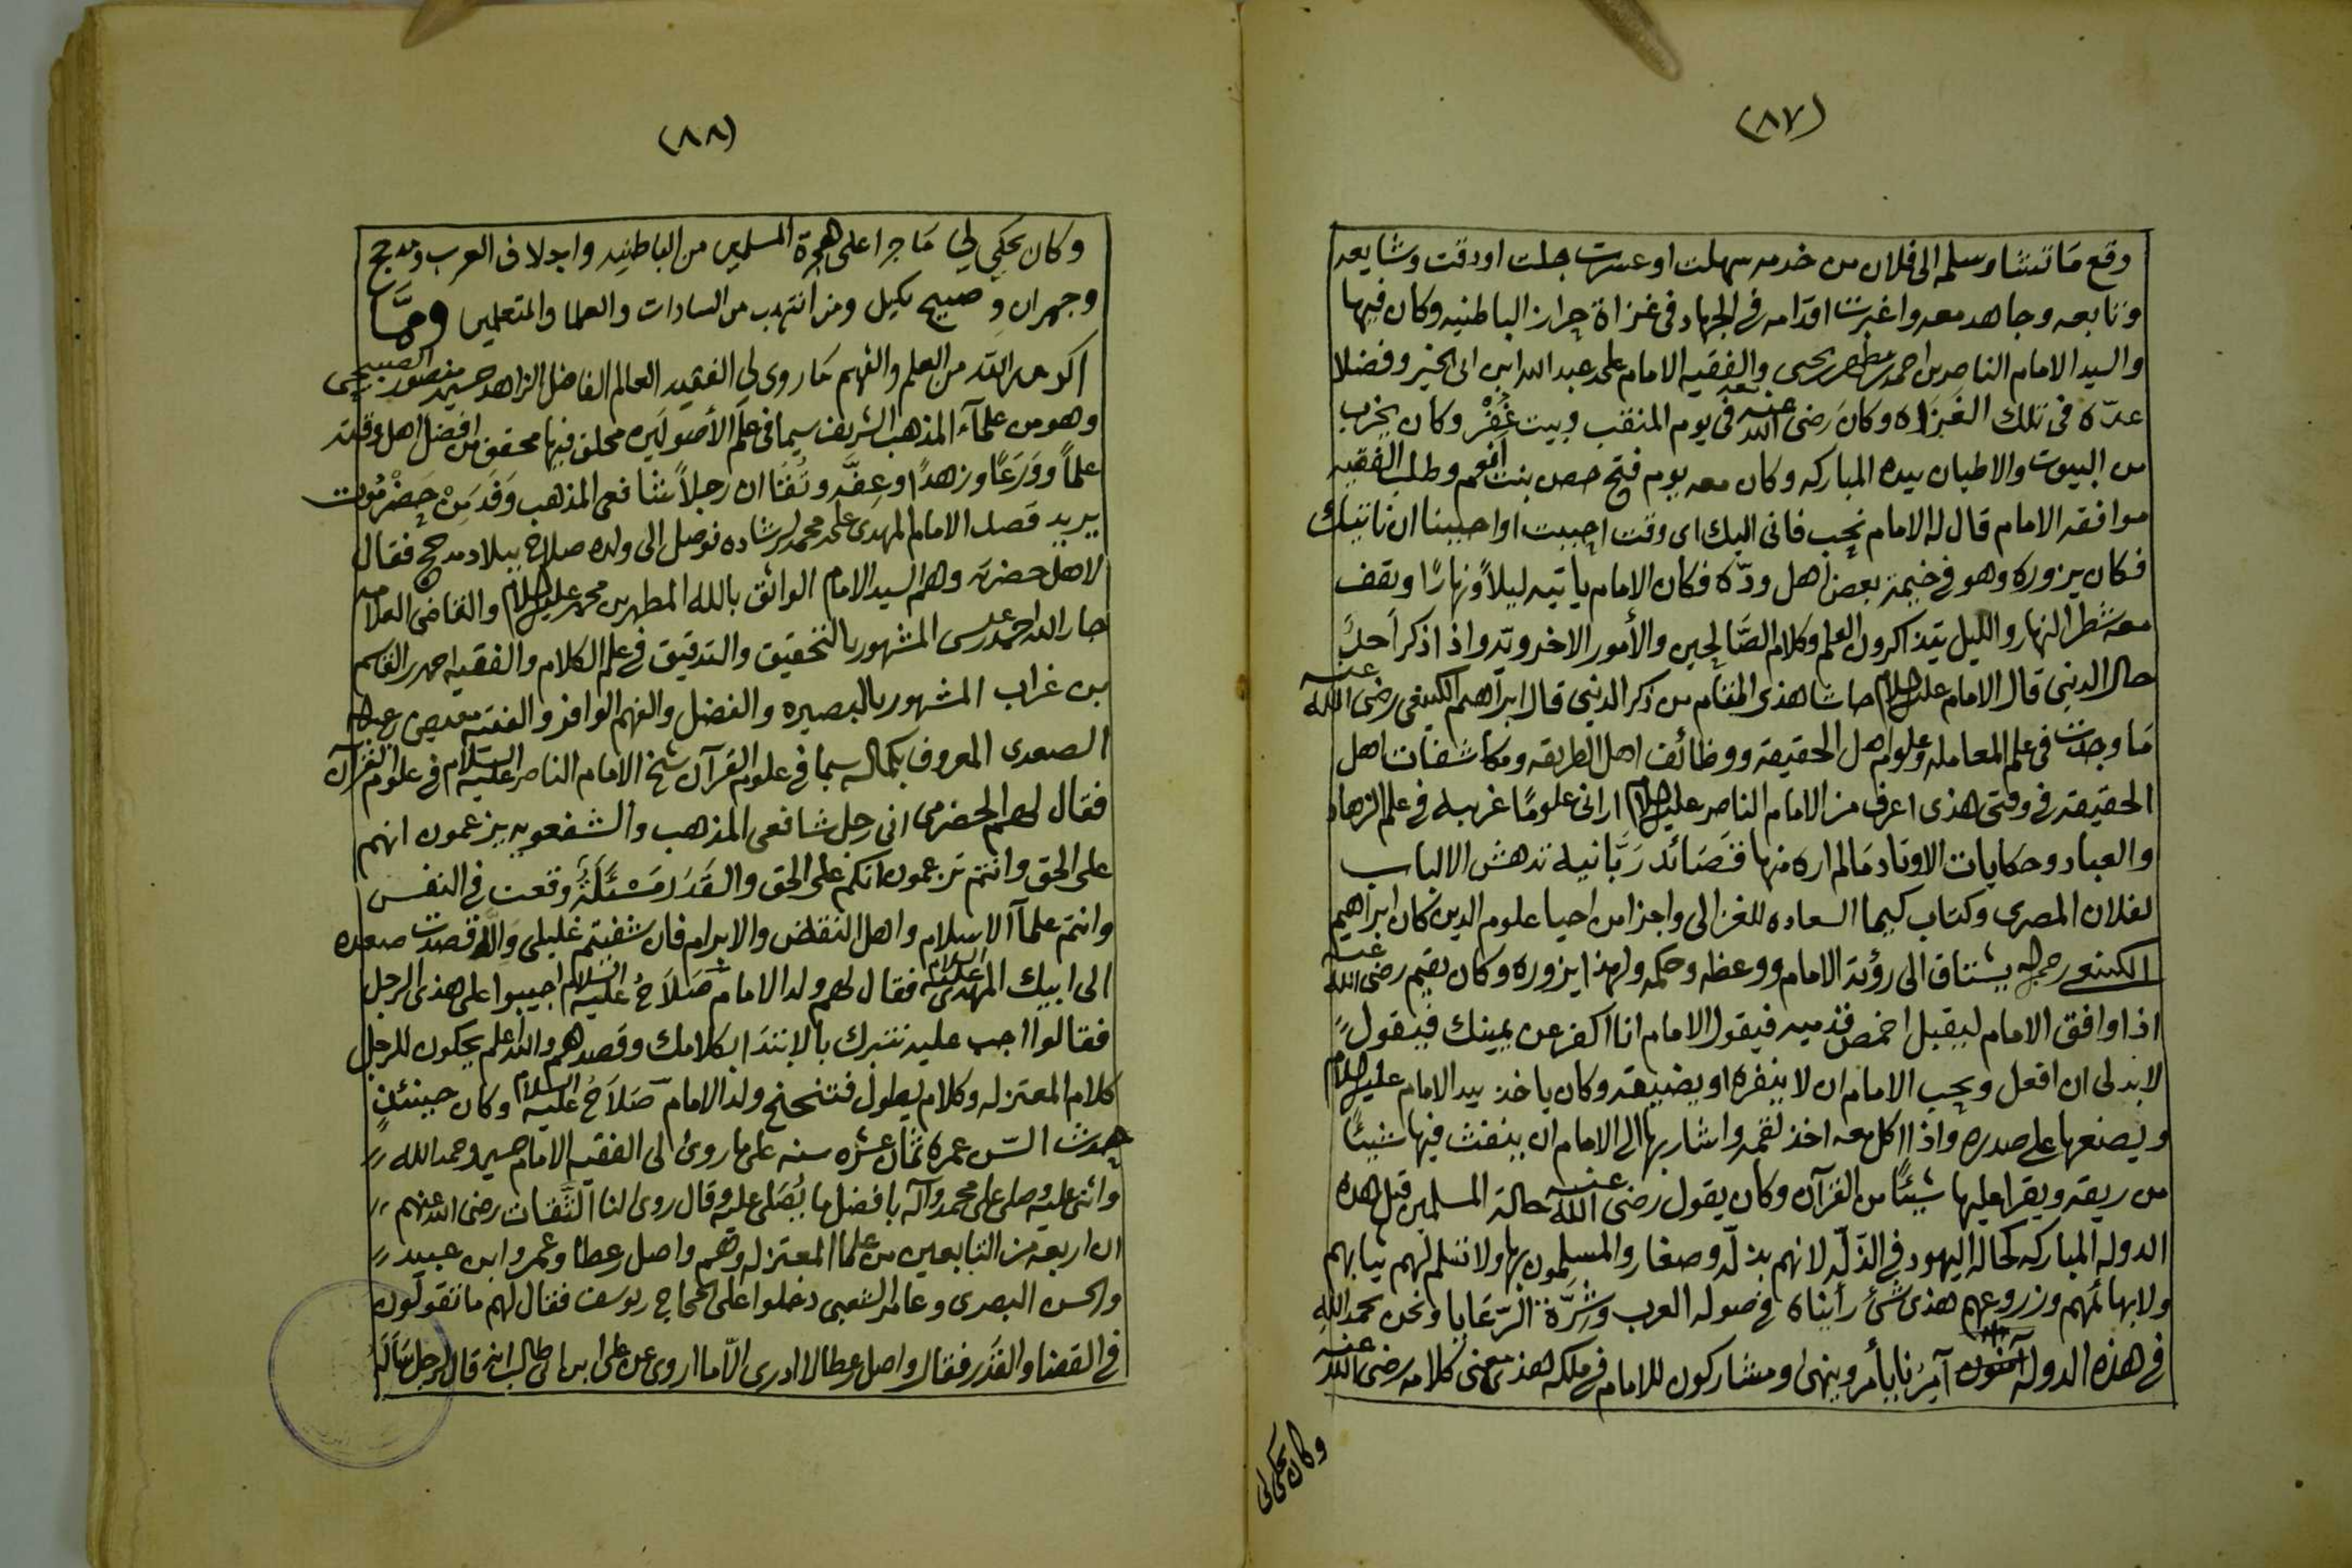 (٨٧)
وقع ما تشا وسلمه الى فلان من خدمه سهلت او عسرت جلت او دقت وشايعه
وتابعه وجاهد معه واغبرت اقدامه في الجهاد في غزاة حراز الباطنيه وكان فيها
والسيد الامام الناصر بن احمد بن مطهر بن يحيى والفقيه الامام على بن عبد الله ابن ابي الخير وفضلا
عدّه في تلك الغزاه وكان رضى الله عنه في يوم المنقب وبيت غُفْر وكان يخرب
من البيوت والاطيان بيده المباركه وكان معه يوم فتح حصن بنت انعم وطلب الفقيه
موافقه الامام قال له الامام نحب فانى اليك اى وقت احببت او احببنا ان ناتيك
فكان يزوره وهو في خيمة بعض اهل ودّه فكان الامام ياتيه ليلاً ونهارًا ويقف
معه شطر النهار والليل يتذاكرون العلم وكلام الصّالحين والأمور الاخرويّه واذا ذكر احدٌ
حال الدنيى قال الامام عليه السلام حاشا هذى المقام من ذكر الدنيى قال ابراهيم الكينعى رضى الله عنه
ما وجدت في علم المعامله وعلوم اهل الحقيقه ووظائف اهل الطريقه ومكاشفات اهل
الحقيقة في وقتى هذى اعرف من الامام الناصر عليه السلام ارانى علومًا غريبه في علم الزهاد
والعباد وحكايات الاوتاد ما لم اره منها قصائد رَبّانيه تدهش الالباب
لفلان المصرى وكتاب كيميا السعاده للغزالى واجزا من احيا علوم الدين كان ابراهيم
الكينعى رحمه الله يشتاق الى رؤية الامام ووعظه وحكمه ولهذا يزوره وكان يقيم رضى الله عنه
اذا وافق الامام ليقبل اخمص قدميه فيقول الامام انا اكفر عن يمينك فيقول
لا بد لى ان افعل ويحب الامام ان لا ينفره او يضيقه وكان ياخذ بيد الامام عليه السلام
ويضعها على صدره واذا اكل معه اخذ لقمه واشار بها الى الامام ان ينفث فيها شيئًا
من ريقه ويقرا عليها شيئًا من القرآن وكان يقول رضى الله عنه حالة المسلمين قبل هذه
الدوله المباركه كحالة اليهود في الذلّه لانهم بذلّه وصغار والمسلمون بها ولا تسلم لهم ثيابهم
ولا بهائمهم وزروعهم هذى شئ رأيناه في صوله العرب وشِرّة الرّعايا ونحن بحمد الله
في هذه الدوله آمنون آمرنا يأمر وينهى ومشاركون للامام في ملكه هذى معنى كلامه رضى الله عنه
وكان يحكى لى
(٨٨)
وكان يحكى لي ما جرا على هجرة المسلمين من الباطنيه واجلاف العرب ومدحج
وجهران وصبيح بكيل ومن انتهب من السادات والعلما والمتعلمين وممّا
اكرمه الله من العلم والفهم ما روى لي الفقيه العالم الفاضل الزاهد حسين بن منصور الصبيحى
وهو من علمآء المذهب الشريف سيما في علم الأصولين محلق فيها محقق من افضل اهل وقته
علماً ووَرَعًا وزهدًا وعفّه وتُقَا ان رجلاً شافعى المذهب وَفَد مِنْ حَضْرَمُوت
يريد قصد الامام المهدى على بن محمد لرشاده فوصل الى ولده صلاح ببلاد مدحج فقال
لاهل حضرته وهم السيد الامام الواثق بالله المطهر بن محمد عليه السلام والقاضى العلامه
جار الله احمد بن عيسى المشهور بالتحقيق والتدقيق في علم الكلام والفقيه احمد بن القاسم
بن غراب المشهور بالبصيره والفضل والفهم الوافر والفقيه
الصعدى المعروف بكماله سيما في علوم القرآن شيخ الامام الناصر عليه السلام في علوم القرآن
فقال لهم الحضرمى انى رجل شافعى المذهب والشفعويه يزعمون انهم
على الحق وانتم تزعمون انكم على الحق والقَدَر مَسْئَلَةٌ وقعت في النفس
وانتم علمآ الاسلام واهل النقاض والابرام فان شفيتم غليلى وَإلّا قصدت صعده
الى ابيك المهدى عليه السلام فقال لهم ولد الامام صَلاَحُ عليه السلام اجيبوا على هذى الرجل
فقالوا اجب عليه نتبرك بالابتدا بكلامك وقصدهم والله اعلم يحكون للرجل
كلام المعتزله وكلام يطول فتنحنح ولد الامام صَلاَحُ عليه السلام وكان حينئذٍ
حدث السّن عمره ثمان عشره سنه على ما روى الى الفقيه الامام حسين وحمد الله
واثنى عليه وصلى على محمد وآله بافضل ما يُصَلى عليه وقال روى لنا الثّقات رضى الله عنهم
ان اربعة من التابعين من علما المعتزله وهم واصل بن عطا وعمرو ابن عبيد
والحسن البصرى وعامر الشعبى دخلوا على الحجاج بن يوسف فقال لهم ما تقولون
في القضا والقَدَر فقال واصل بن عطا لا ادرى الّا ما اروى عن على ابن ابى طالب انه قال لرجل سَأَلَهُ